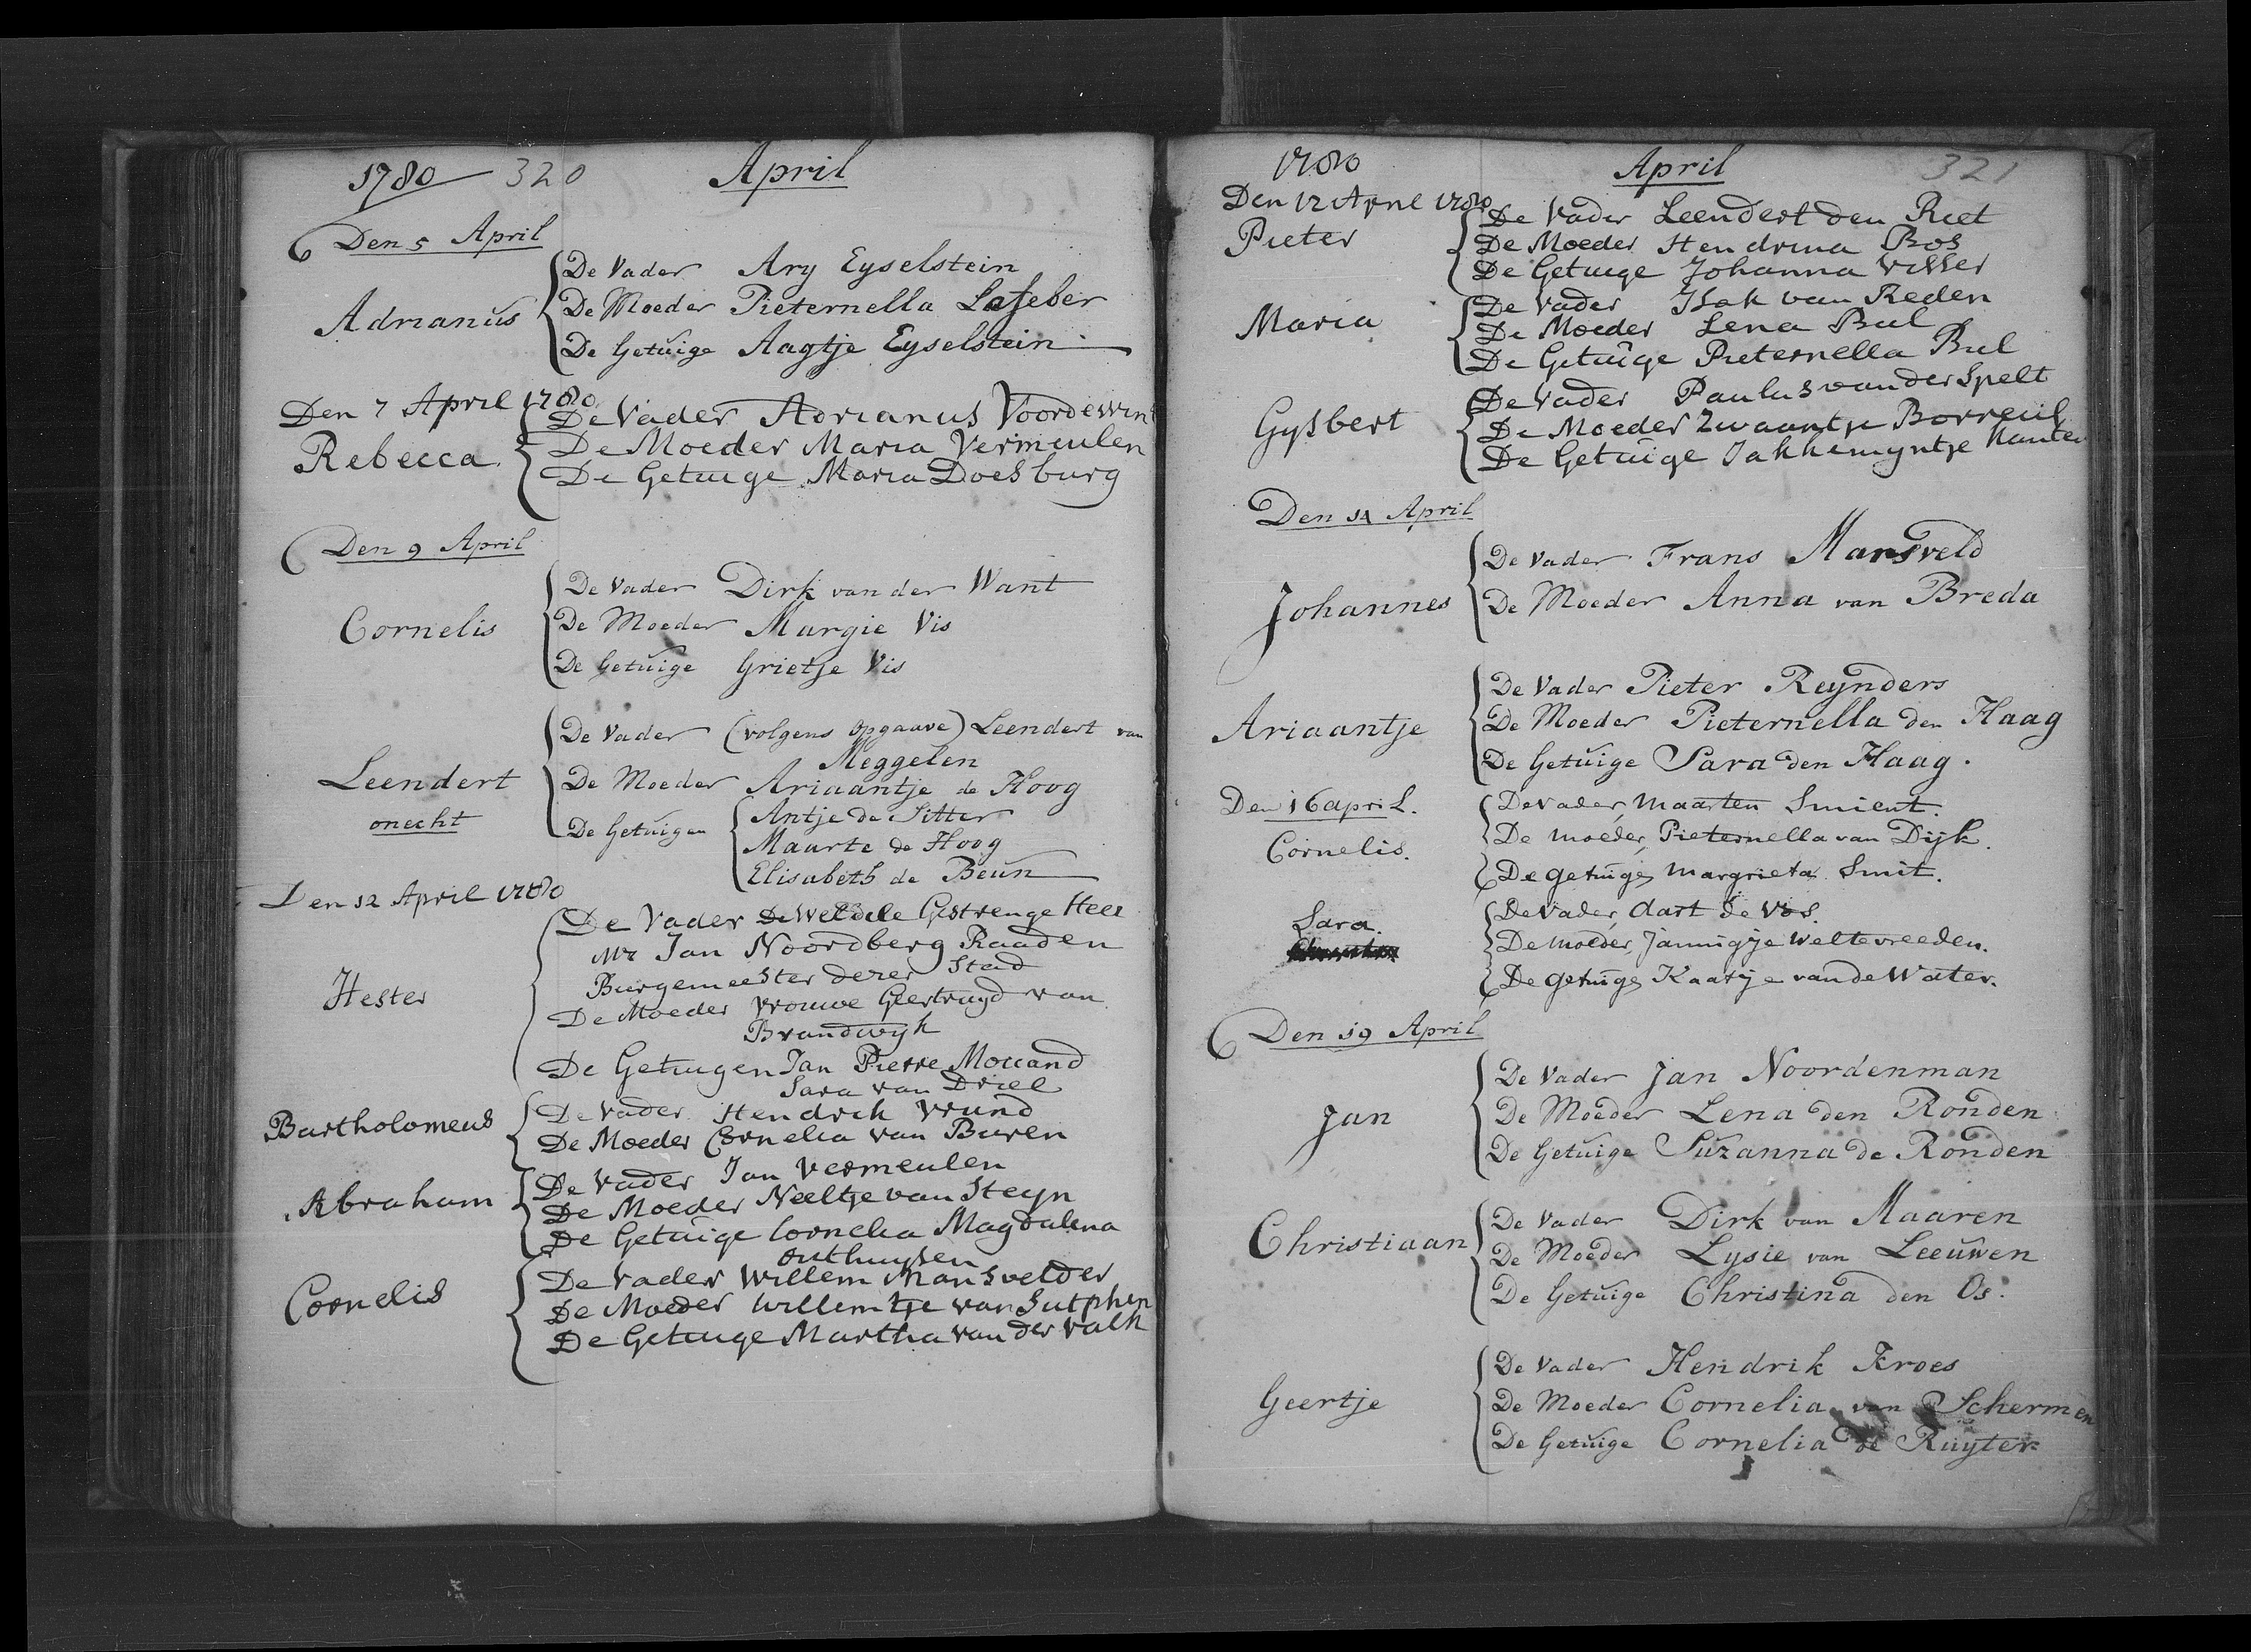 1780 320 April
Den 5 April
Adrianus
De Vader Ary Eyselstein
De Moeder Pieternella Lafeber
De Getuige Aagtje Eyselstein
Den 7 April 1780
Rebecca
De Vader Adrianus Voordewint
De Moeder Maria Vermeulen
De Getuige Maria Doesburg
Den 9 April
Cornelis
De Vader Dirk van der Want
De Moeder Margie Vis
De Getuige Grietje Vis
Leendert
onecht
De Vader (volgens Opgaave) Leendert van
Meggelen
De Moeder Ariaantje de Hoog
De Getuigen
Antje de Sitter
Maarte de Hoog
Elisabeth de Beun
Den 12 April 1780
Hester
De Vader De WelEdele Gestrenge Heer
Mr Jan Noordberg Raad en
Burgemeester dezer Stad
De Moeder Vrouwe Geertruyd van
Brandwyk
De Getuigen Jan Pierre Moccand
Sara van Driel
Bartholomeus
De Vader Hendrik Vrund
De Moeder Cornelia van Buren
Abraham
De Vader Jan Vermeulen
De Moeder Neeltje van Steyn
De Getuige Cornelia Magdalena
Outhuysen
Cornelis
De Vader Willem Mansvelder
De Moeder Willemtje van Sutphen
De Getuige Martha van der Valk
1780 April 321
Den 12 April 1780
Pieter
De Vader Leendert den Riet
De Moeder Hendrina Bos
De Getuige Johanna Visser
Maria
De Vader Isak van Reden
De Moeder Lena Bul
De Getuige Pieternella Bul
Gysbert
De Vader Paulus van der Spelt
De Moeder Zwaantje Borreul
De Getuige Jakkemyntje Kanter
Den 14 April
Johannes
De Vader Frans Mansveld
De Moeder Anna van Breda
Ariaantje
De Vader Pieter Reynders
De Moeder Pieternella den Haag
De Getuige Sara den Haag.
Den 16 april.
Cornelis.
De vader, Maarten Smient.
De moeder, Pieternella van Dijk.
De getuige, Margrieta Smit.
Sara.
De Vader, Aart de Vos.
De moeder, Jannigje Weltevreeden.
De getuige, Kaatje van de Water.
Den 19 April
Jan
De Vader Jan Noordenman
De Moeder Lena den Ronden
De Getuige Suzanna de Ronden
Christiaan
De Vader Dirk van Maaren
De Moeder Lysie van Leeuwen
De Getuige Christina den Os.
Geertje
De Vader Hendrik Kroes
De Moeder Cornelia van Schermen
De Getuige Cornelia de Ruyter